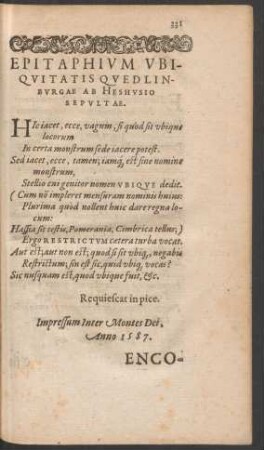 331
EPITAPHIVM VBI-
QVITATIS QVEDLIN-
BVRGAE AB HESHVSIO
SEPVLTAE.
HIc iacet, ecce, vagum, si quod sit vbique
locorum
In certa monstrum sede iacere potest.
Sed iacet, ecce, tamen; iamq́, est sine nomine
monstrum,
Stellio cui genitor nomen VBIQVE dedit.
(Cum nō impleret mensuram nominis huius:
Plurima quòd nollent huic dare regna lo-
cum:
Hassia sit testis, Pomerania, Cimbrica tellus;)
Ergo RESTRICTVM cetera turba vocat.
Aut est; aut non est; quod si sit vbiq,, negabis
Restrictum; sin est sic, quid vbiq, vocas?
Sic nusquam est, quod vbique fuit, &c.
Requiescat in pice.
Impressum Inter Montes Dei,
Anno 1587.
ENCO-